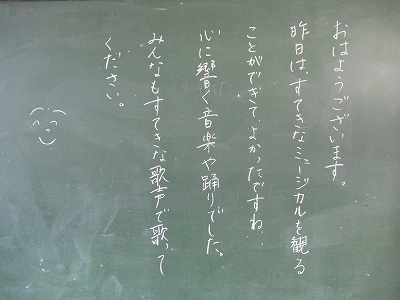 おはようございます。
昨日は、すてきなミュージカルを観る
ことができて、よかったですね。
心に響く音楽や踊りでした。
みんなもすてきな歌声で歌って
ください。